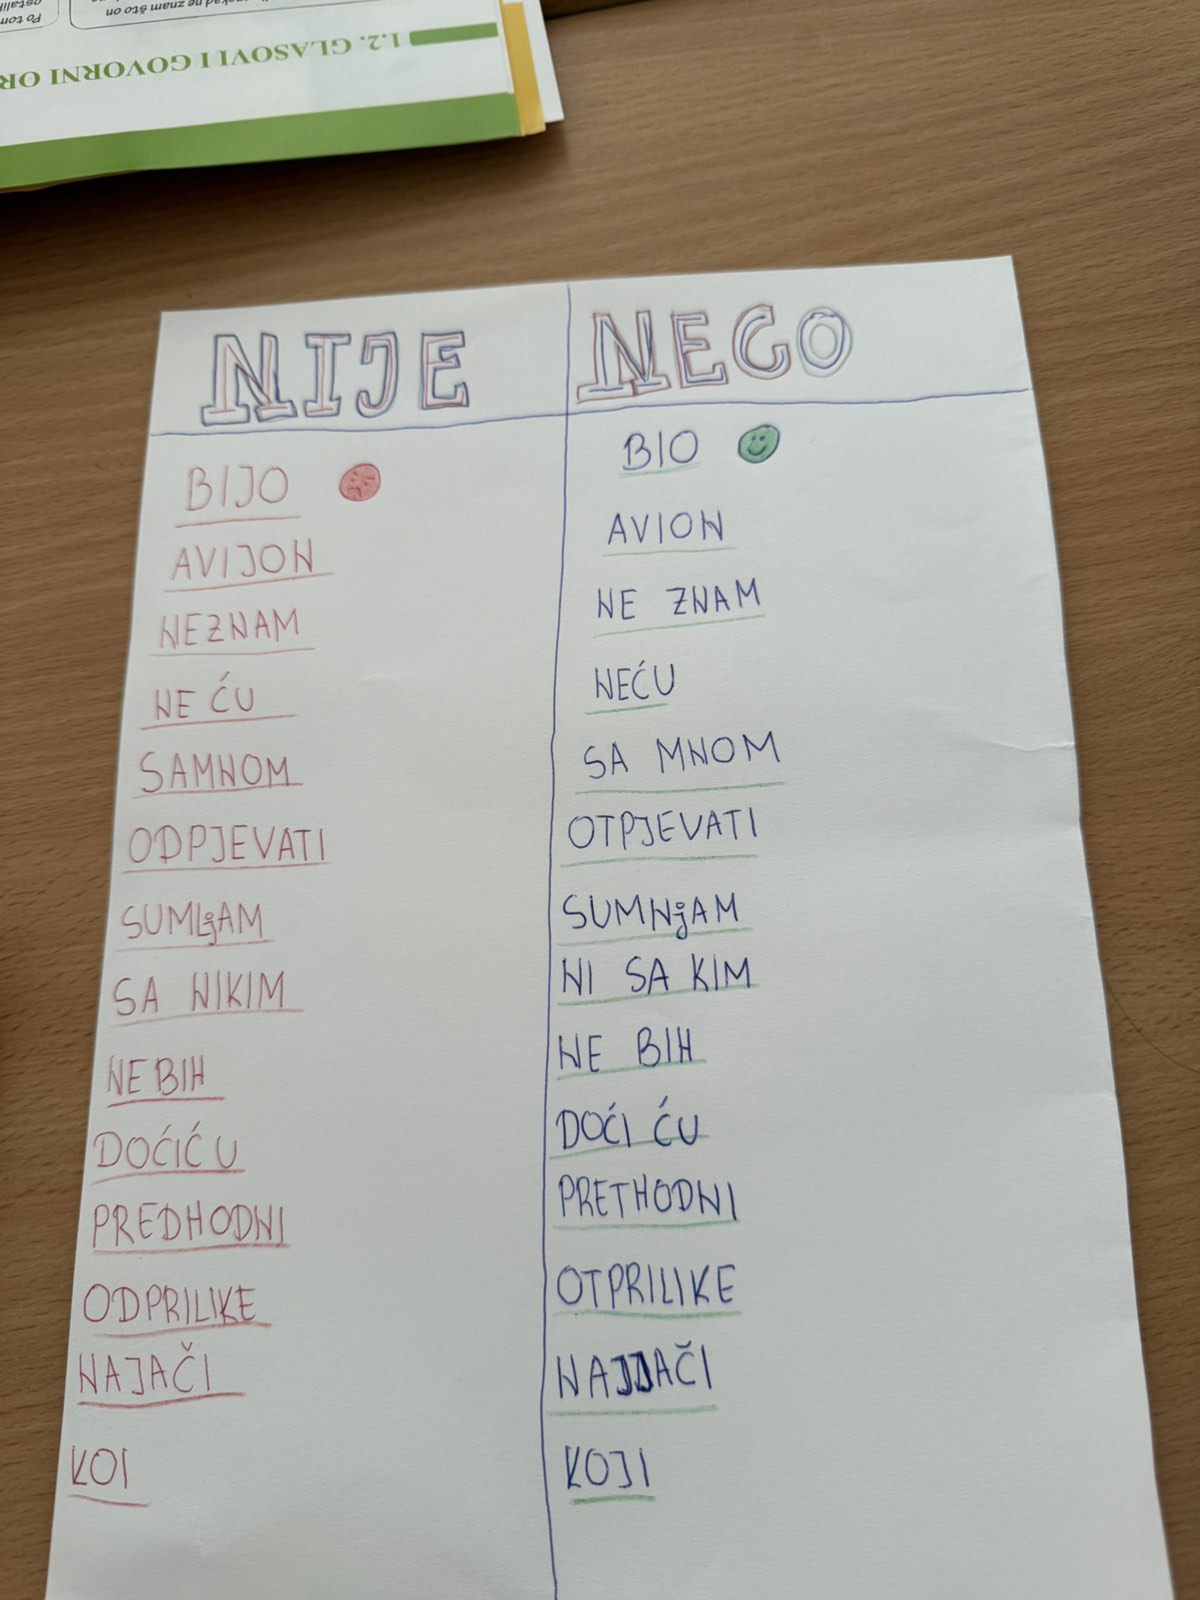 1.2. GLASOVI I GOVORNI
NIJE NEGO
BIJO BIO
AVIJON AVION
NEZNAM NE ZNAM
NE ĆU NEĆU
SAMNOM SA MNOM
ODPJEVATI OTPJEVATI
SUMLjAM SUMNjAM
SA NIKIM NI SA KIM
NEBIH NE BIH
DOĆIĆU DOĆI ĆU
PREDHODNI PRETHODNI
ODPRILIKE OTPRILIKE
NAJAČI NAJJAČI
KOI KOJI